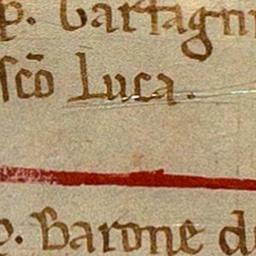 p. Bartagni
sco̅ Luca.
p. Barone de